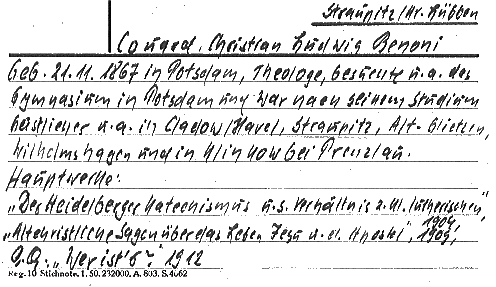 Straupitz/Kr. Lübben
Conrad, Christian Ludwig Benoni
Geb. 21.11.1867 in Potsdam, Theologe, besuchte u.a. das
Gymnasium in Potsdam und war nach seinem Studium
Geistlicher u.a. in Cladow/Havel, Straupitz, Alt-Glietzen,
Wilhelmshagen und in Klinkow bei Prenzlau.
Hauptwerke:
"Der Heidelberger Katechismus u.s. Verhältnis z. Kl. lutherischen", 1904
"Altchristliche Sagen über das Leben Jesu u.d. Apostel", 1909,
Q.: "Wer ist's?" 1912
Reg. 10 Stichnote. I. 50. 232000. A. 803. S. 4062